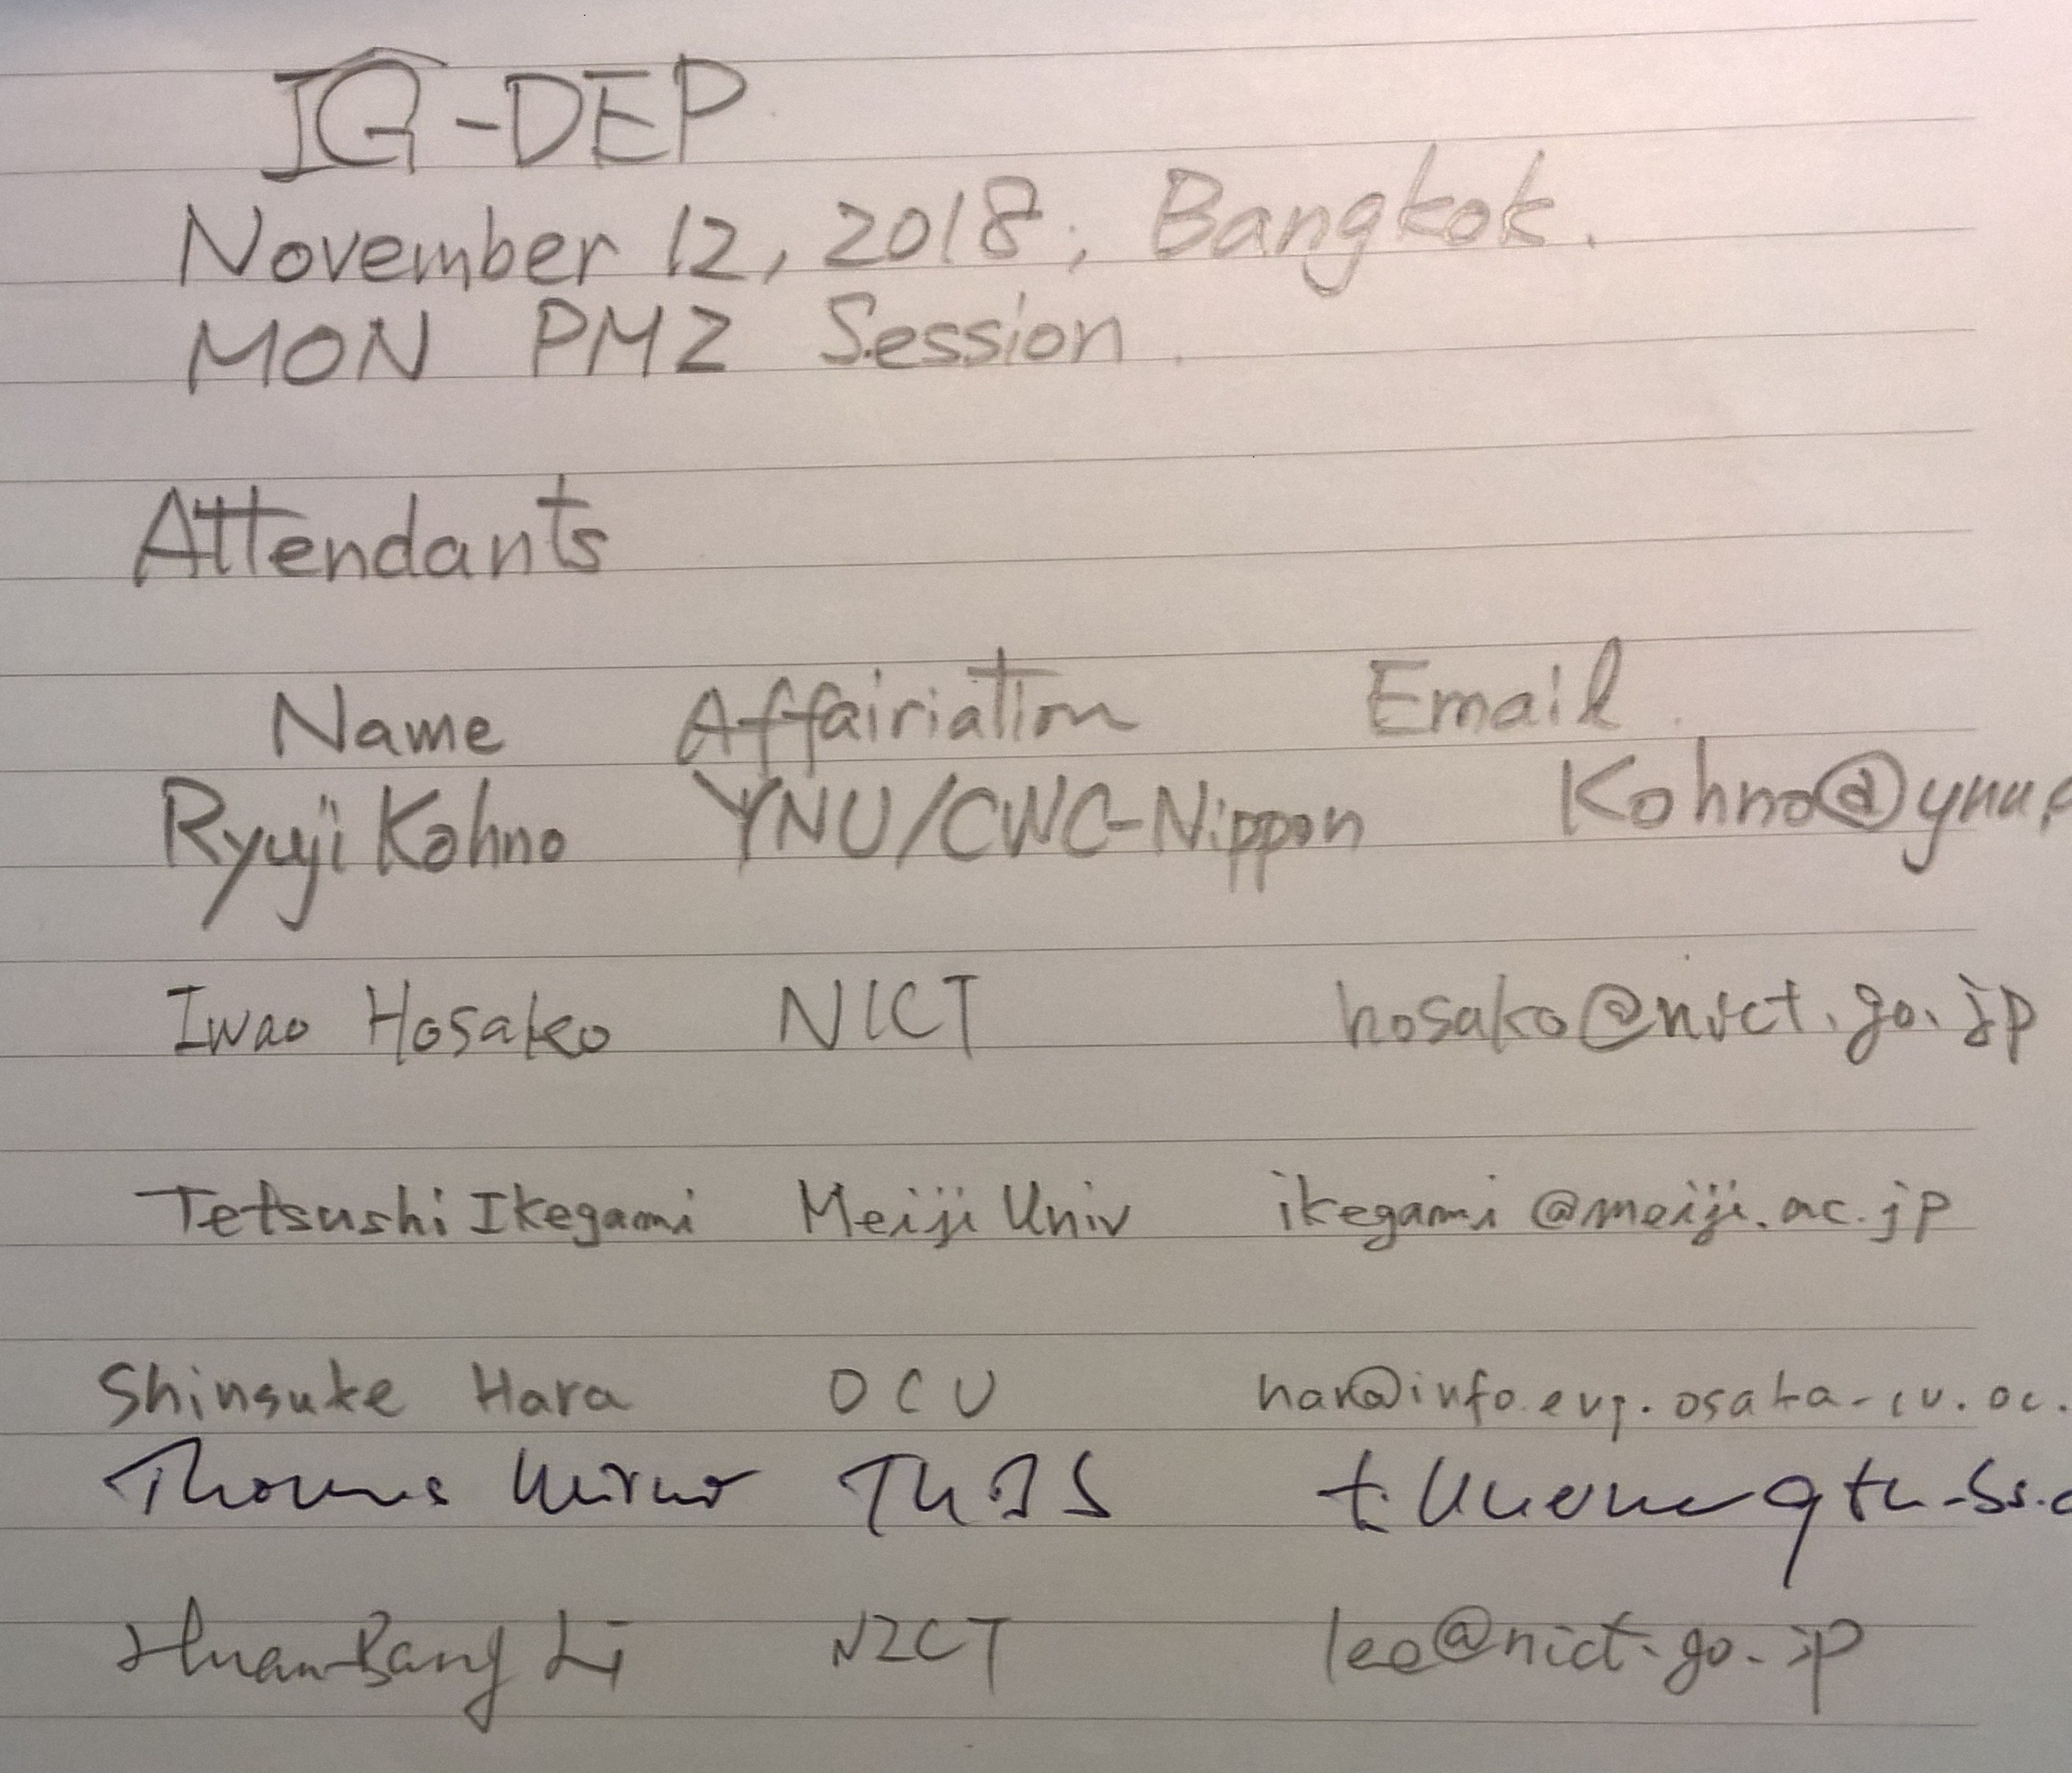 IG-DEP
November 12, 2018, Bangkok.
MON PM2 Session.
Attendants
Name Affairiation Email
Ryuji Kohno YNU/CWC-Nippon Kohno@ynu.
Iwao Hosako NICT hosako@nict.go.jp
Tetsushi Ikegami Meiji Univ ikegami@meiji.ac.jp
Shinsuke Hara OCU
Thomas
Huan-Bang Li NICT lee@nict.go.jp